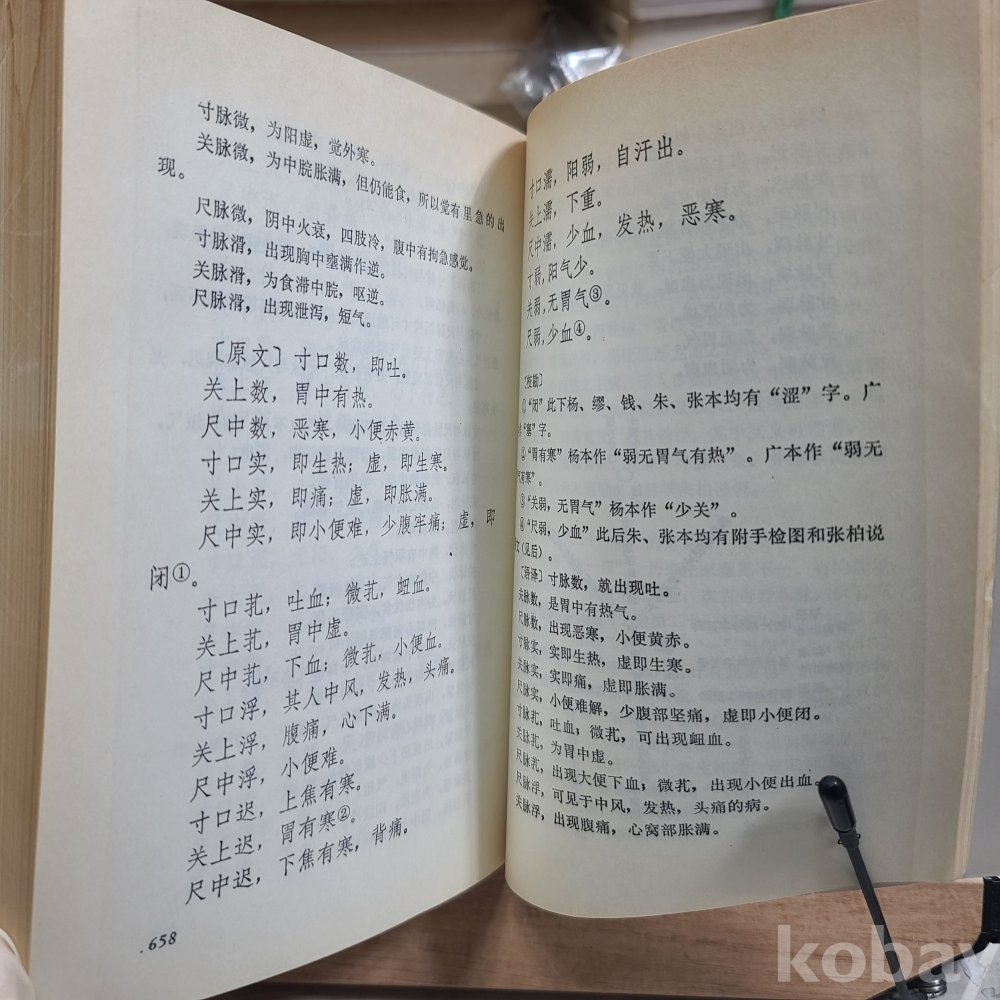 寸脉微，为阳虚，觉外寒。
关脉微，为中脘胀满，但仍能食，所以觉有里急的出
现。
尺脉微，阴中火衰，四肢冷，腹中有拘急感觉。
寸脉滑，出现胸中壅满作逆。
关脉滑，为食滞中脘，呕逆。
尺脉滑，出现泄泻，短气。
〔原文〕寸口数，即吐。
关上数，胃中有热。
尺中数，恶寒，小便赤黄。
寸口实，即生热；虚，即生寒。
关上实，即痛；虚，即胀满。
尺中实，即小便难，少腹牢痛；虚，即
闭①。
寸口芤，吐血；微芤，衄血。
关上芤，胃中虚。
尺中芤，下血；微芤，小便血。
寸口浮，其人中风，发热，头痛。
关上浮，腹痛，心下满。
尺中浮，小便难。
寸口迟，上焦有寒。
关上迟，胃有寒②。
尺中迟，下焦有寒，背痛。
658
寸口濡，阳弱，自汗出。
关上濡，下重。
尺中濡，少血，发热，恶寒。
寸弱，阳气少。
关弱，无胃气③。
尺弱，少血④。
〔校勘〕
①“闭”此下杨、缪、钱、朱、张本均有“涩”字。广
“塞”字。
②“胃有寒”杨本作“弱无胃气有热”。广本作“弱无
气有寒”。
③“关弱，无胃气”杨本作“少关”。
④“尺弱，少血”此后朱、张本均有附手检图和张柏说
文（见后）。
〔语译〕寸脉数，就出现吐。
关脉数，是胃中有热气。
尺脉数，出现恶寒，小便黄赤。
寸脉实，实即生热，虚即生寒。
关脉实，实即痛，虚即胀满。
尺脉实，小便难解，少腹部坚痛，虚即小便闭。
寸脉芤，吐血；微芤，可出现衄血。
关脉芤，为胃中虚。
尺脉芤，出现大便下血；微芤，出现小便出血。
尺脉浮，可见于中风，发热，头痛的病。
关脉浮，出现腹痛，心窝部胀满。
kobay